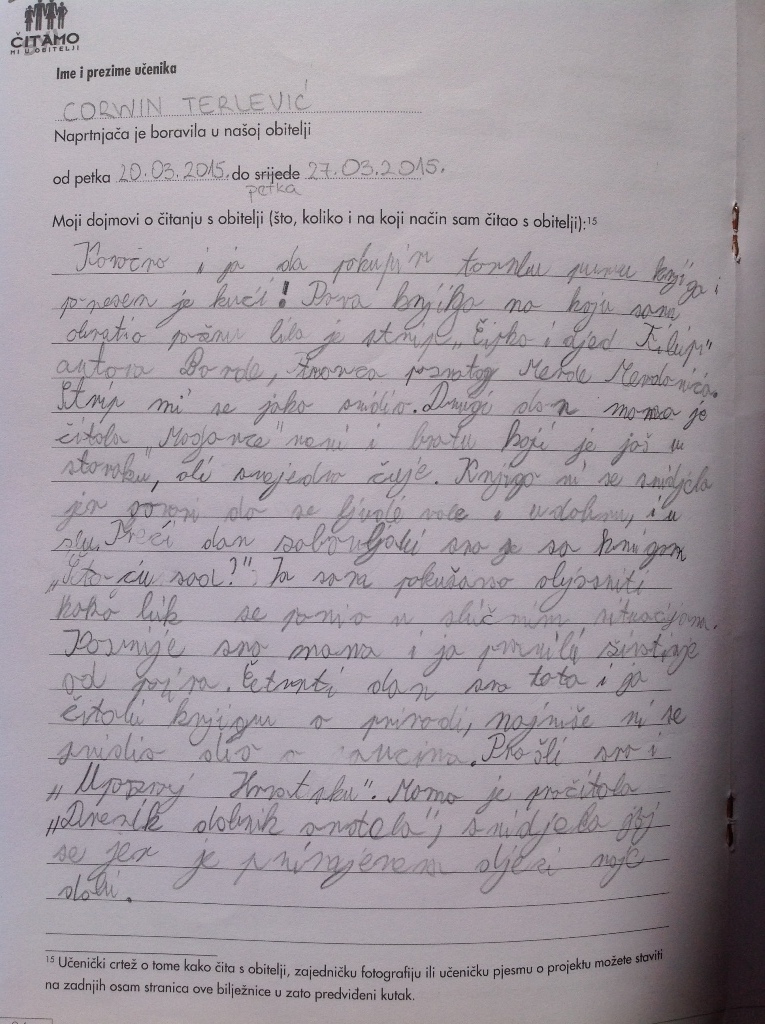 ČITAMO
MI U OBITELJI
Ime i prezime učenika
CORWIN TERLEVIĆ
Naprtnjača je boravila u našoj obitelji
od petka 20.03.2015. do srijede 27.03.2015.
petka
Moji dojmovi o čitanju s obitelji (što, koliko i na koji način sam čitao s obitelji):15
Konačno i ja da pokupim torbu punu knjiga i
prnesem je kući! Prva knjiga na koju sam
obratio je strip „Čipko i djed Filip"
autora
Strip mi se jako svidio. Drugi dan mama je
čitala meni i bratu koji je još u
stomaku, ali svejedno čuje. Knjiga mi se svidjela
jer govori da se ljudi vole i u dobru, i u
zlu. Treći dan zabavljali smo se sa knigom
„Što ću sad?". Ja sam pokušavao objasniti
kako lik se u sličnim situacijama.
Kasnije smo mama i ja životinje
od papira. Četvrti dan smo tata i ja
čitali knjigu o prirodi, najviše mi se
svidio dio o Prošli smo i
„Upoznaj Hrvatsku". Mama je pročitala
„Dnevnik anđela", svidjela joj
se jer je primjeren djeci moje
dobi.
15 Učenički crtež o tome kako čita s obitelji, zajedničku fotografiju ili učeničku pjesmu o projektu možete staviti
na zadnjih osam stranica ove bilježnice u zato predviđeni kutak.